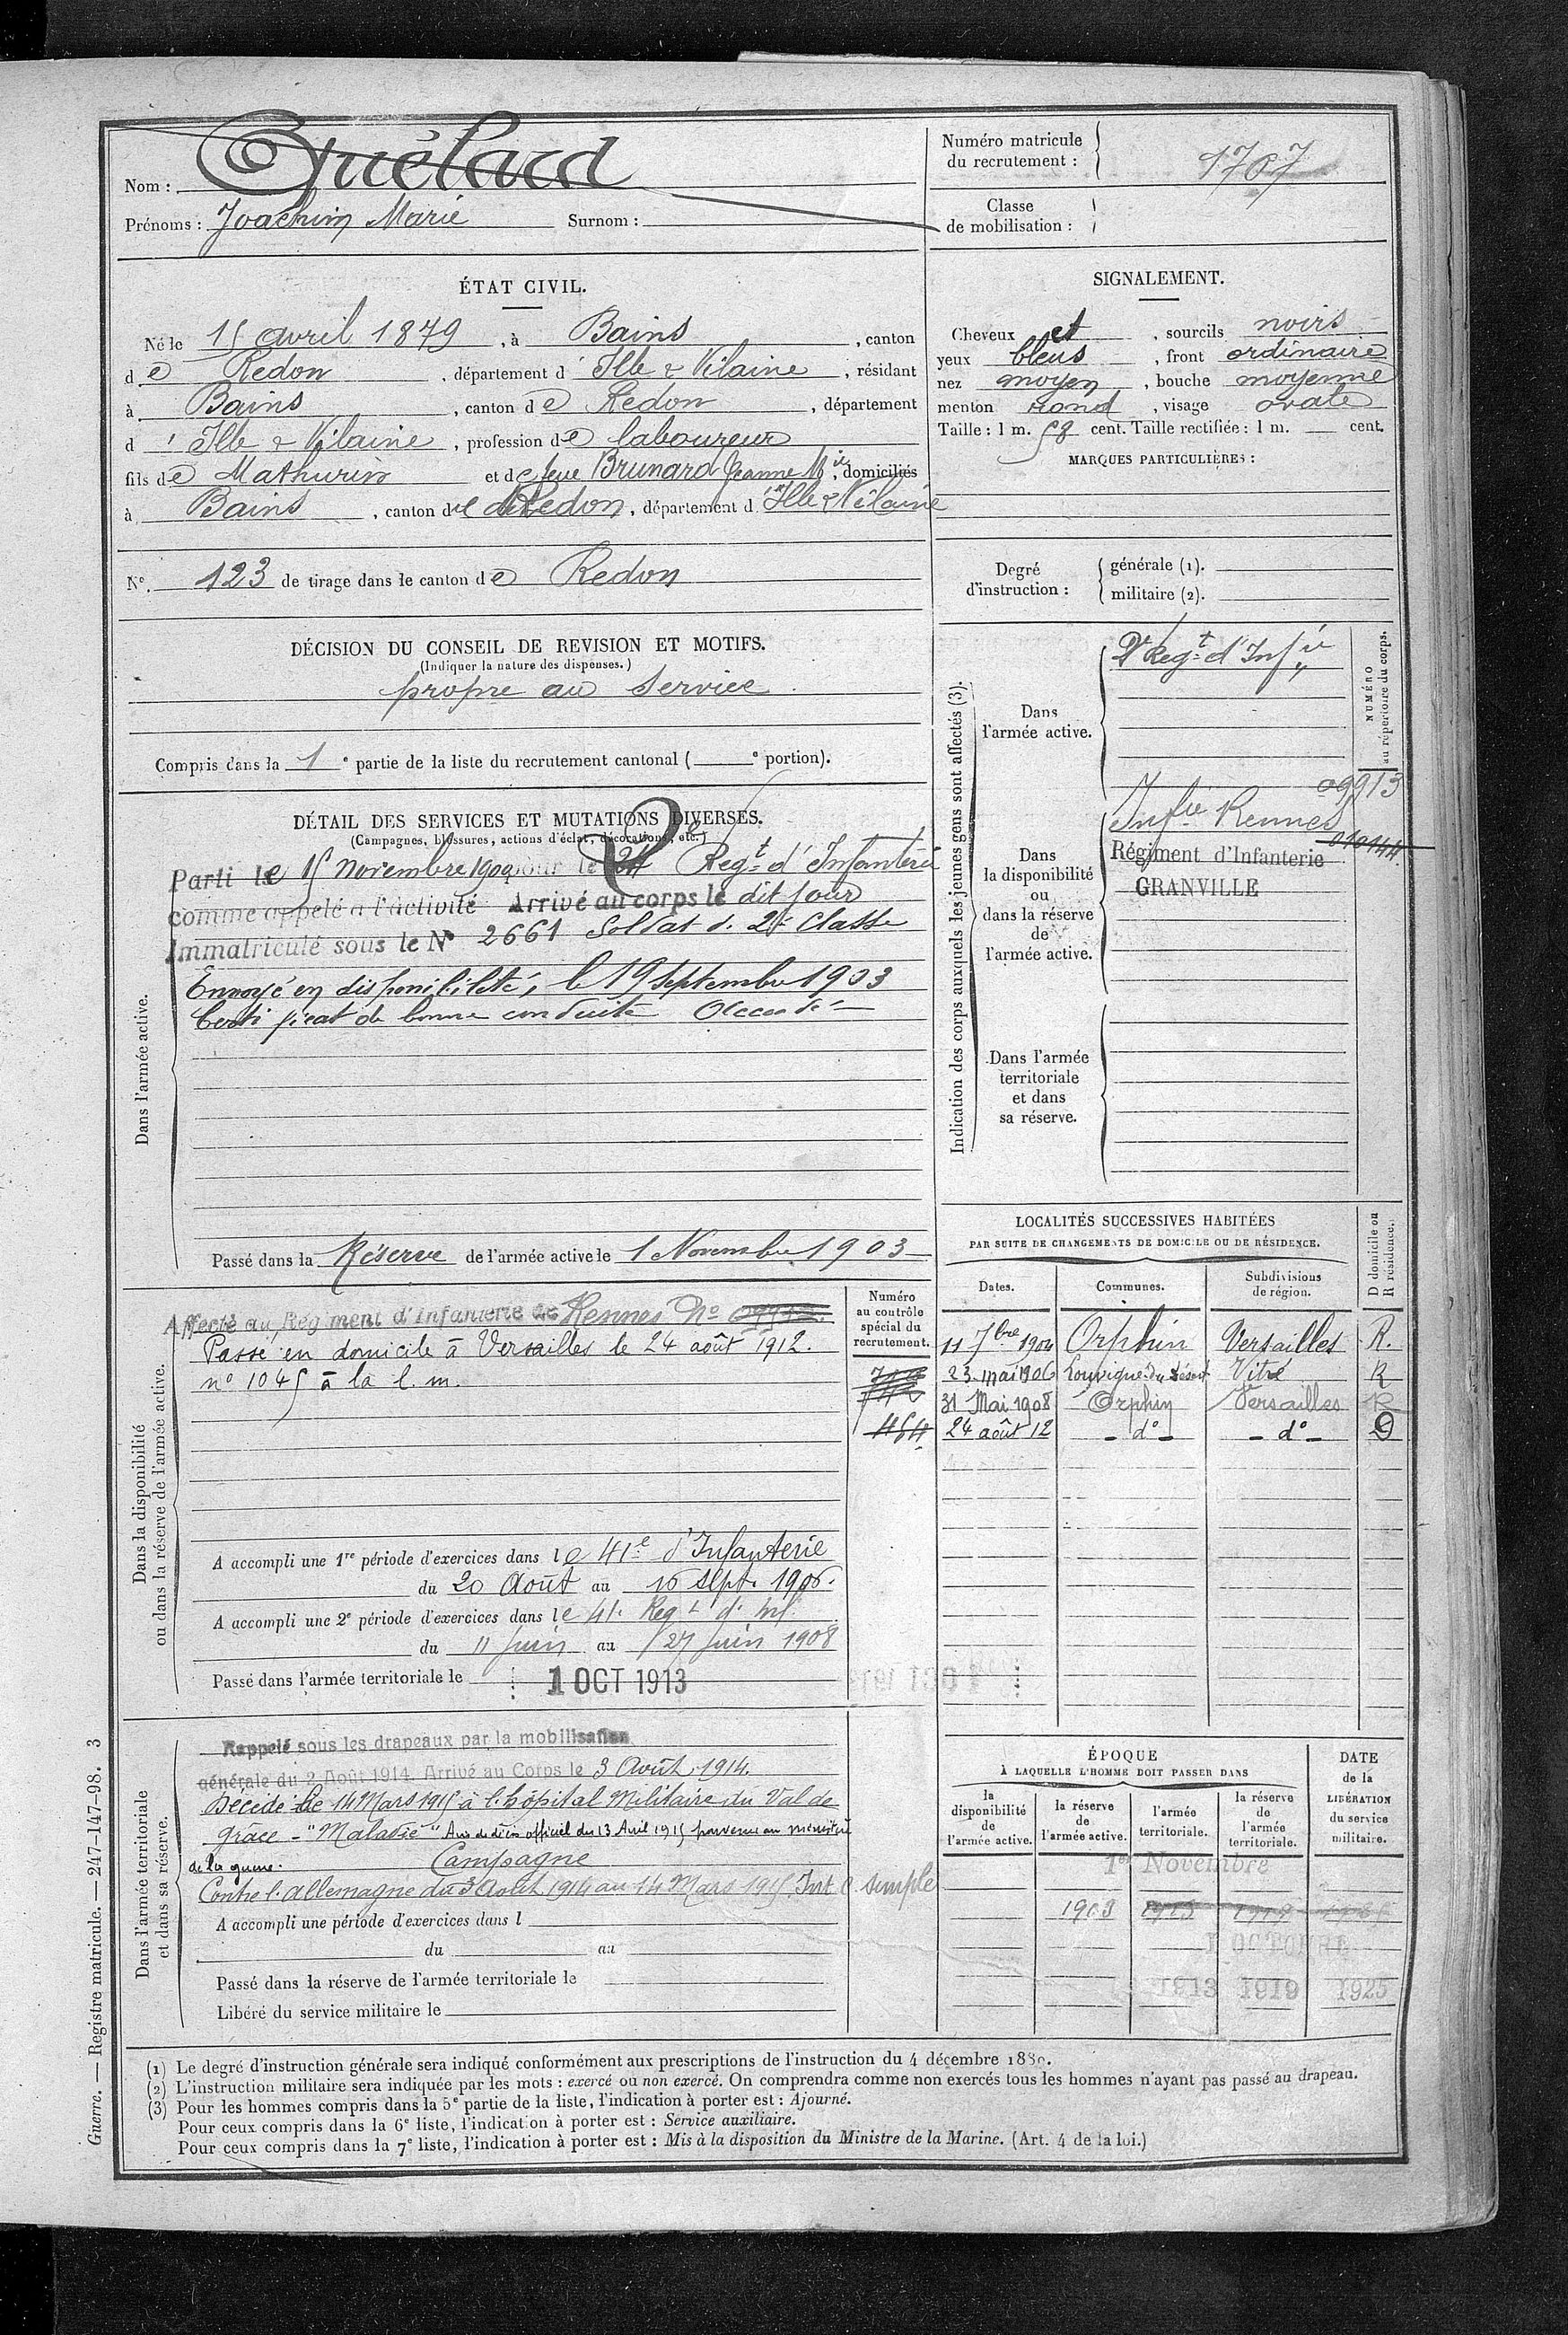 Nom : Quélard
Prénoms : Joachim Marie Surnom :
Numéro matricule du recrutement : 1707
Classe de mobilisation :
ÉTAT CIVIL.
Né le 15 avril 1879, à Bains, canton
de Redon, département d'Ille & Vilaine, résidant
à Bains, canton de Redon, département
d'Ille & Vilaine, profession de laboureur
fils de Mathurin et de feue Brunard Jeanne Mie, domiciliés
à Bains, canton de Redon, département d'Ille & Vilaine
N°. 123 de tirage dans le canton de Redon
SIGNALEMENT.
Cheveux et, sourcils noirs
yeux bleus, front ordinaire
nez moyen, bouche moyenne
menton rond, visage ovale
Taille : 1 m. 58 cent. Taille rectifiée : 1 m. cent.
MARQUES PARTICULIÈRES :
Degré d'instruction :
générale (1).
militaire (2).
DÉCISION DU CONSEIL DE REVISION ET MOTIFS.
(Indiquer la nature des dispenses.)
propre au service.
Compris dans la 1e partie de la liste du recrutement cantonal ( e portion).
DÉTAIL DES SERVICES ET MUTATIONS DIVERSES.
(Campagnes, blessures, actions d'éclat, décorations, etc.)
Dans l'armée active.
Parti le 15 Novembre 1900 pour le 2e Regt d'Infanterie
comme appelé à l'activité Arrivé au corps le dit jour
Immatriculé sous le N° 2661 Soldat de 2e Classe
Envoyé en disponibilité, le 19 Septembre 1903
Certificat de bonne conduite Accordé
Passé dans la Réserve de l'armée active le 1 Novembre 1903
Indication des corps auxquels les jeunes gens sont affectés (3).
NUMÉRO au répertoire du corps.
Dans l'armée active.
2e Regt d'Infie
Dans la disponibilité ou dans la réserve de l'armée active.
Infie Rennes 09913
Régiment d'Infanterie 010144
GRANVILLE
Dans l'armée territoriale et dans sa réserve.
Dans la disponibilité ou dans la réserve de l'armée active.
Numéro au contrôle spécial du recrutement.
Affecté au Régiment d'Infanterie de Rennes No 09913
Passé en domicile à Versailles le 24 août 1912.
n° 1045 à la l. m.
464
A accompli une 1re période d'exercices dans le 41e d'Infanterie
du 20 Août au 16 Sept. 1906.
A accompli une 2e période d'exercices dans le 41e Regt d'Inf.
du 11 juin au 27 juin 1908
Passé dans l'armée territoriale le 1 OCT 1913
LOCALITÉS SUCCESSIVES HABITÉES
PAR SUITE DE CHANGEMENTS DE DOMICILE OU DE RÉSIDENCE.
Dates. Communes. Subdivisions de région. D domicile ou R résidence.
11 7bre 1904 Orphin Versailles R.
23 mai 1906 Louvigné du Désert Vitré R
31 Mai 1908 Orphin Versailles R
24 août 12 - d° - - d° - D
Dans l'armée territoriale et dans sa réserve.
Rappelé sous les drapeaux par la mobilisation
générale du 2 Août 1914. Arrivé au Corps le 3 Août 1914.
Décédé le 14 Mars 1915 à l'hôpital Militaire du Val de
Grâce - "Maladie" Avis de décès officiel du 13 Avril 1915 parvenu au ministère
de la guerre.
Campagne
Contre l'Allemagne du 3 Août 1914 au 14 Mars 1915. Int C. simple
A accompli une période d'exercices dans l
du au
Passé dans la réserve de l'armée territoriale le
Libéré du service militaire le
ÉPOQUE
À LAQUELLE L'HOMME DOIT PASSER DANS
la disponibilité de l'armée active. la réserve de l'armée active. l'armée territoriale. la réserve de l'armée territoriale. DATE de la LIBÉRATION du service militaire.
1er Novembre
1903 1913 1919
1 OCTOBRE
1913 1919 1925
(1) Le degré d'instruction générale sera indiqué conformément aux prescriptions de l'instruction du 4 décembre 1889.
(2) L'instruction militaire sera indiquée par les mots : exercé ou non exercé. On comprendra comme non exercés tous les hommes n'ayant pas passé au drapeau.
(3) Pour les hommes compris dans la 5e partie de la liste, l'indication à porter est : Ajourné.
Pour ceux compris dans la 6e liste, l'indication à porter est : Service auxiliaire.
Pour ceux compris dans la 7e liste, l'indication à porter est : Mis à la disposition du Ministre de la Marine. (Art. 4 de la loi.)
Guerre. — Registre matricule. — 247-147-98. 3